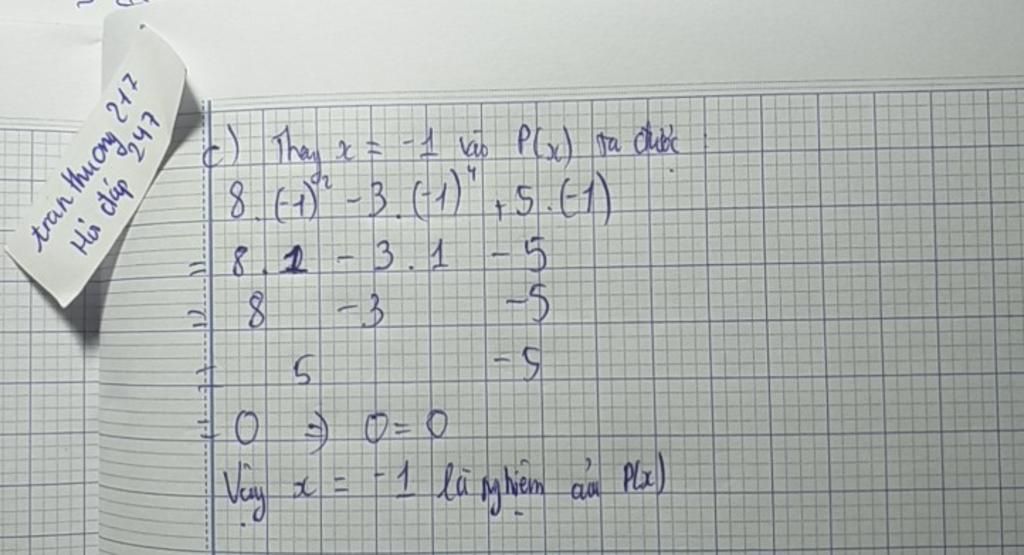 tran thuong 217
Hỏi đáp 247
c) Thay x = -1 vào P(x) ta được :
8 . (-1)² - 3 . (-1)⁴ + 5 . (-1)
= 8 . 1 - 3 . 1 - 5
= 8 - 3 - 5
= 5 - 5
= 0 ⇒ 0 = 0
Vậy x = -1 là nghiệm của P(x)